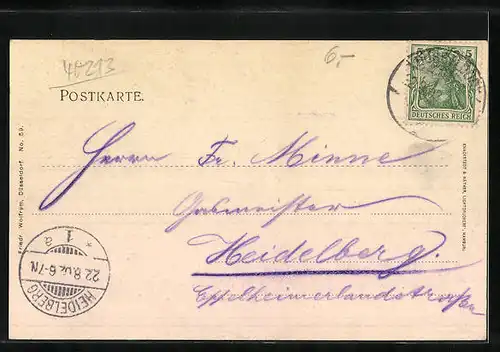 48213
6,-
POSTKARTE.
5
DEUTSCHES REICH
Herrn Fr. Minne
Gasmeister
Heidelberg.
Eppelheimerlandstraße
Friedr. Wolfrym, Düsseldorf. No. 59.
HEIDELBERG
22.8.02.6-7N.
* 1 a